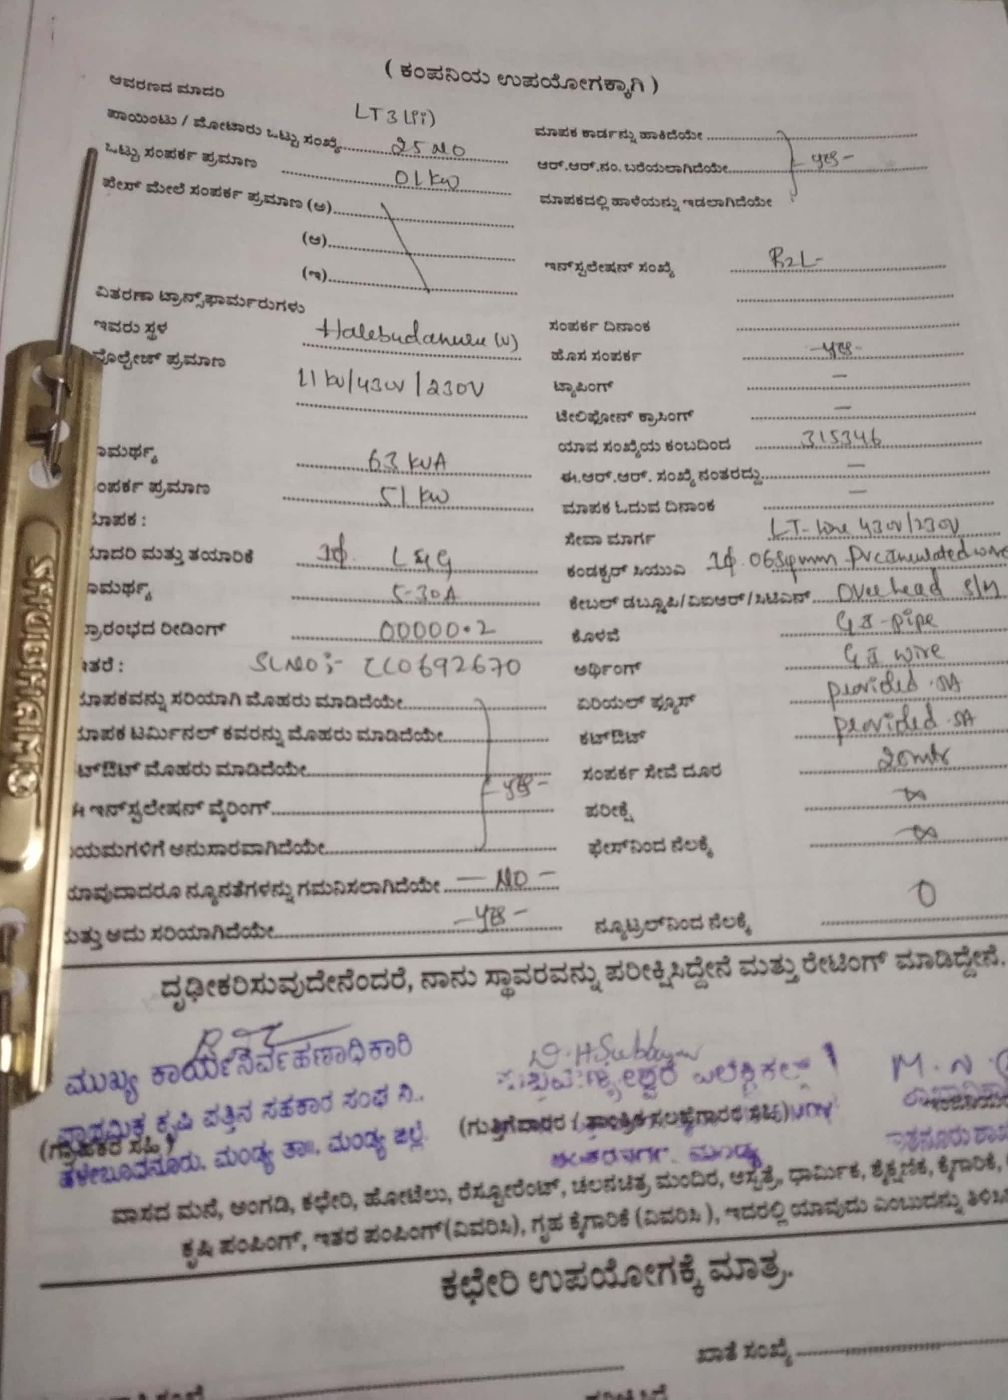 ( ಕಂಪನಿಯ ಉಪಯೋಗಕ್ಕಾಗಿ )
ಆವರಣದ ಮಾದರಿ LT3(ii)
ಪಾಯಿಂಟು / ಮೋಟಾರು ಒಟ್ಟು ಸಂಖ್ಯೆ 25 NO
ಒಟ್ಟು ಸಂಪರ್ಕ ಪ್ರಮಾಣ 01 kW
ಪೇಸ್ ಮೇಲೆ ಸಂಪರ್ಕ ಪ್ರಮಾಣ (ಅ)
(ಆ)
(ಇ)
ವಿತರಣಾ ಟ್ರಾನ್ಸ್‌ಫಾರ್ಮರುಗಳು
ಇವರು ಸ್ಥಳ Halebudanuru (V)
ವೊಲ್ಟೇಜ್ ಪ್ರಮಾಣ 11 kV/430V/230V
ಾಮರ್ಥ್ಯ 63 KVA
ಂಪರ್ಕ ಪ್ರಮಾಣ 51 kW
ಾಪಕ :
ಾದರಿ ಮತ್ತು ತಯಾರಿಕೆ 1ϕ. L&G
ಾಮರ್ಥ್ಯ 5-30A
ಪ್ರಾರಂಭದ ರೀಡಿಂಗ್ 00000.2
ಇತರೆ : SL NO :- CC0692670
ಮಾಪಕವನ್ನು ಸರಿಯಾಗಿ ಮೊಹರು ಮಾಡಿದೆಯೇ
ಮಾಪಕ ಟರ್ಮಿನಲ್ ಕವರನ್ನು ಮೊಹರು ಮಾಡಿದೆಯೇ
ಕಟ್‌ಔಟ್ ಮೊಹರು ಮಾಡಿದೆಯೇ - yes -
ಈ ಇನ್‌ಸ್ಟಲೇಷನ್ ವೈರಿಂಗ್
ನಿಯಮಗಳಿಗೆ ಅನುಸಾರವಾಗಿದೆಯೇ
ಯಾವುದಾದರೂ ನ್ಯೂನತೆಗಳನ್ನು ಗಮನಿಸಲಾಗಿದೆಯೇ - NO -
ಮತ್ತು ಅದು ಸರಿಯಾಗಿದೆಯೇ - yes -
ಮಾಪಕ ಕಾರ್ಡನ್ನು ಹಾಕಿದೆಯೇ
ಆರ್.ಆರ್.ನಂ. ಬರೆಯಲಾಗಿದೆಯೇ - yes -
ಮಾಪಕದಲ್ಲಿ ಹಾಳೆಯನ್ನು ಇಡಲಾಗಿದೆಯೇ
ಇನ್‌ಸ್ಟಲೇಷನ್ ಸಂಖ್ಯೆ
ಸಂಪರ್ಕ ದಿನಾಂಕ
ಹೊಸ ಸಂಪರ್ಕ - yes -
ಟ್ಯಾಪಿಂಗ್ -
ಟೇಲಿಫೋನ್ ಕ್ರಾಸಿಂಗ್ -
ಯಾವ ಸಂಖ್ಯೆಯ ಕಂಬದಿಂದ 315346
ಈ.ಆರ್.ಆರ್. ಸಂಖ್ಯೆ ನಂತರದ್ದು -
ಮಾಪಕ ಓದುವ ದಿನಾಂಕ -
ಸೇವಾ ಮಾರ್ಗ LT-line 430V/230V
ಕಂಡಕ್ಟರ್ ಸಿಯುವಿ 1ϕ. 06sqmm wire
ಕೇಬಲ್ ಡಬ್ಲ್ಯೂಪಿ/ವಿಐಆರ್/ಸಿಟಿಎಸ್ overhead S/M
ಕೊಳವೆ GI-pipe
ಅರ್ಥಿಂಗ್ GI wire
ಏರಿಯಲ್ ಫ್ಯೂಸ್ provided 5A
ಕಟ್‌ಔಟ್ provided 5A
ಸಂಪರ್ಕ ಸೇವೆ ದೂರ 20mtr
ಪರೀಕ್ಷೆ ∞
ಫೇಸ್‌ನಿಂದ ನೆಲಕ್ಕೆ ∞
ನ್ಯೂಟ್ರಲ್‌ನಿಂದ ನೆಲಕ್ಕೆ 0
ದೃಢೀಕರಿಸುವುದೇನೆಂದರೆ, ನಾನು ಸ್ಥಾವರವನ್ನು ಪರೀಕ್ಷಿಸಿದ್ದೇನೆ ಮತ್ತು ರೇಟಿಂಗ್ ಮಾಡಿದ್ದೇನೆ.
ಮುಖ್ಯ ಕಾರ್ಯನಿರ್ವಹಣಾಧಿಕಾರಿ
ಪ್ರಾಥಮಿಕ ಕೃಷಿ ಪತ್ತಿನ ಸಹಕಾರ ಸಂಘ ನಿ.,
(ಗ್ರಾಹಕರ ಸಹಿ)
ಹಳೇಬೂದನೂರು, ಮಂಡ್ಯ ತಾ॥, ಮಂಡ್ಯ ಜಿಲ್ಲೆ.
ಎಲೆಕ್ಟ್ರಿಕಲ್
(ಗುತ್ತಿಗೆದಾರರ / ತಾಂತ್ರಿಕ ಸಲಹೆಗಾರರ ಸಹಿ)
ಮಂಡ್ಯ
M. N.
ವಾಸದ ಮನೆ, ಅಂಗಡಿ, ಕಛೇರಿ, ಹೋಟೆಲು, ರೆಸ್ಟೋರೆಂಟ್, ಚಲನಚಿತ್ರ ಮಂದಿರ, ಆಸ್ಪತ್ರೆ, ಧಾರ್ಮಿಕ, ಶೈಕ್ಷಣಿಕ, ಕೈಗಾರಿಕೆ,
ಕೃಷಿ ಪಂಪಿಂಗ್, ಇತರ ಪಂಪಿಂಗ್ (ವಿವರಿಸಿ), ಗೃಹ ಕೈಗಾರಿಕೆ (ವಿವರಿಸಿ), ಇದರಲ್ಲಿ ಯಾವುದು ಎಂಬುದನ್ನು
ಕಛೇರಿ ಉಪಯೋಗಕ್ಕೆ ಮಾತ್ರ.
ಖಾತೆ ಸಂಖ್ಯೆ
SHUBHAM